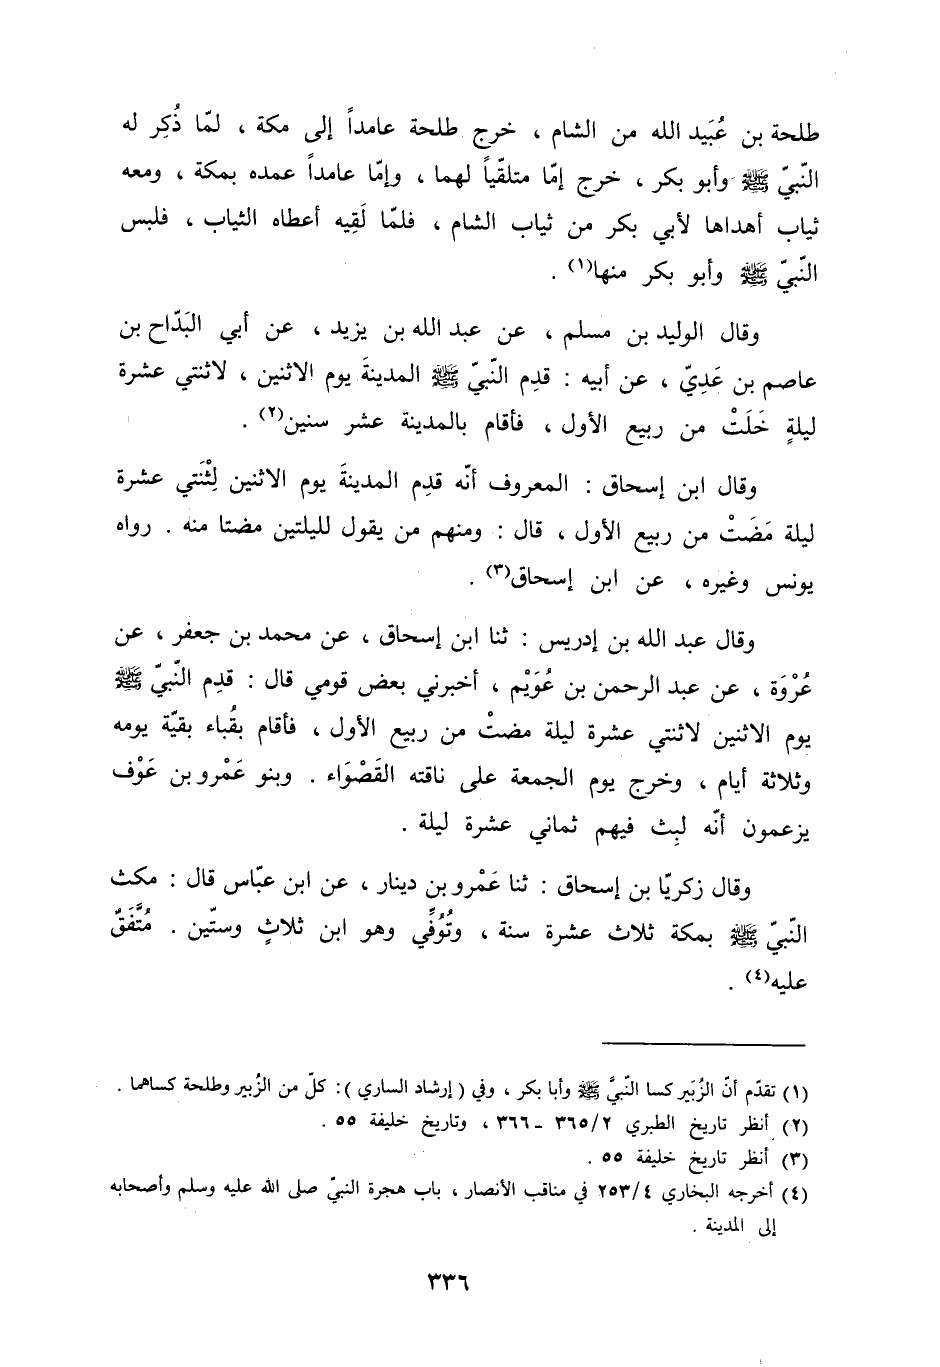 طلحة بن عُبَيد الله من الشام ، خرج طلحة عامداً إلى مكة ، لمّا ذُكِر له
النّبيّ ﷺ وأبو بكر ، خرج إمّا متلقّياً لهما ، وإمّا عامداً عمده بمكة ، ومعه
ثياب أهداها لأبي بكر من ثياب الشام ، فلمّا لَقِيه أعطاه الثياب ، فلبس
النّبيّ ﷺ وأبو بكر منها(١) .
وقال الوليد بن مسلم ، عن عبد الله بن يزيد ، عن أبي البَدّاح بن
عاصم بن عَدِيّ ، عن أبيه : قدِم النّبيّ ﷺ المدينةَ يوم الاثنين ، لاثنتي عشرة
ليلةٍ خَلَتْ من ربيع الأول ، فأقام بالمدينة عشر سنين(٢) .
وقال ابن إسحاق : المعروف أنّه قدِم المدينةَ يوم الاثنين لِثْنَتي عشرة
ليلة مَضَتْ من ربيع الأول ، قال : ومنهم من يقول لليلتين مضتا منه . رواه
يونس وغيره ، عن ابن إسحاق(٣) .
وقال عبد الله بن إدريس : ثنا ابن إسحاق ، عن محمد بن جعفر ، عن
عُرْوَة ، عن عبد الرحمن بن عُوَيْم ، أخبرني بعض قومي قال : قدِم النّبيّ ﷺ
يوم الاثنين لاثنتي عشرة ليلة مضتْ من ربيع الأول ، فأقام بقُباء بقيّة يومه
وثلاثة أيام ، وخرج يوم الجمعة على ناقته القَصْوَاء . وبنو عَمْرو بن عَوْف
يزعمون أنّه لبِث فيهم ثماني عشرة ليلة .
وقال زكريّا بن إسحاق : ثنا عَمْرو بن دينار ، عن ابن عبّاس قال : مكث
النّبيّ ﷺ بمكة ثلاث عشرة سنة ، وتُوُفِّي وهو ابن ثلاثٍ وستّين . مُتَّفَقٌ
عليه(٤) .
(١) تقدّم أنّ الزُبَير كسا النّبيَّ ﷺ وأبا بكر ، وفي ( إرشاد الساري ) : كلّ من الزُبير وطلحة كساهما .
(٢) أنظر تاريخ الطبري ٣٦٥/٢ ـ ٣٦٦ ، وتاريخ خليفة ٥٥ .
(٣) أنظر تاريخ خليفة ٥٥ .
(٤) أخرجه البخاري ٢٥٣/٤ في مناقب الأنصار ، باب هجرة النبيّ صلى الله عليه وسلم وأصحابه
إلى المدينة .
٣٣٦